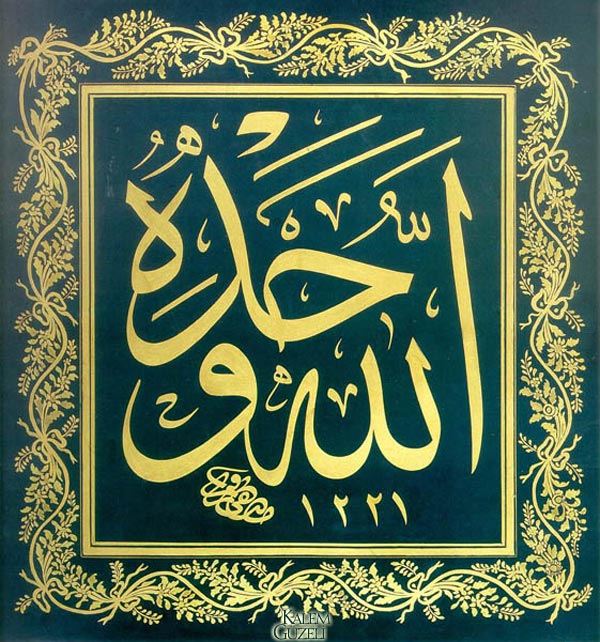 الله وحده
١٢٢١
KALEM
GÜZELİ